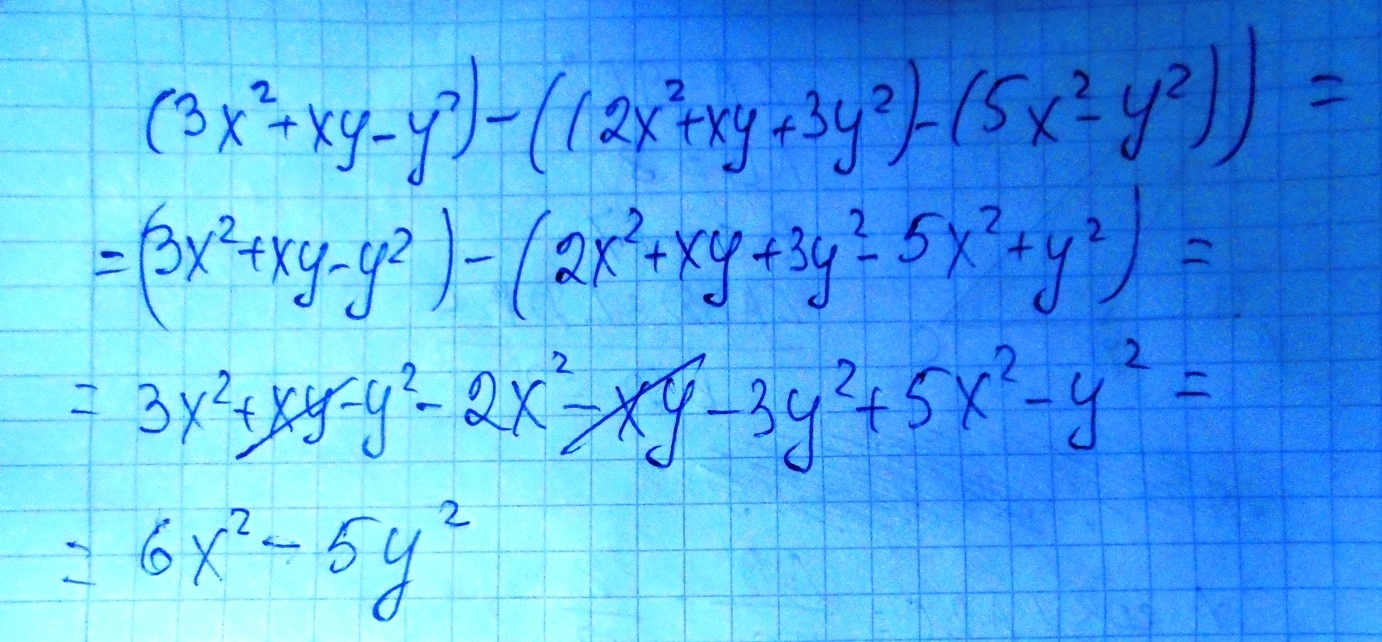 (3x²+xy-y²)-((2x²+xy+3y²)-(5x²-y²))=
=(3x²+xy-y²)-(2x²+xy+3y²-5x²+y²)=
=3x²+xy-y²-2x²-xy-3y²+5x²-y²=
=6x²-5y²